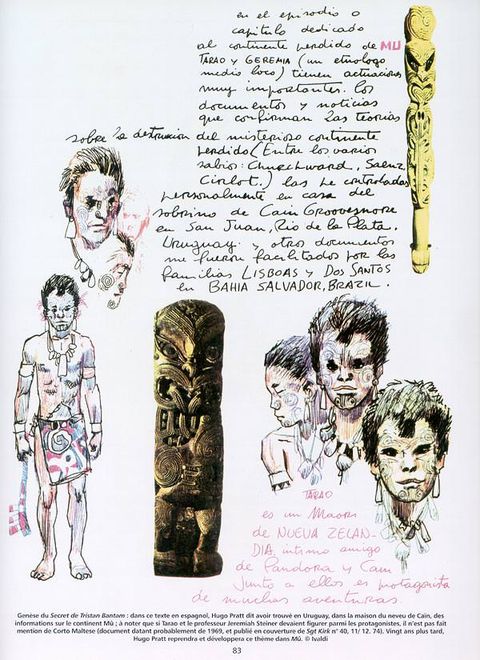 en el episodio o
capitulo dedicado
al continente perdido de MU
TARAO y GEREMIA (un etnologo
medio loco) tienen actuaciones
muy importantes. los
documentos y noticias
que confirman las teorias
sobre la destruccion del misterioso continente
perdido (Entre los varios
sabios: Churchward, Saenz
Cirlot.) las he controladas
personalmente en casa del
sobrino de Cain Groovesnore
en San Juan, Rio de la Plata.
Uruguay. y otros documentos
me fueron facilitados por las
familias LISBOAS y DOS SANTOS
en BAHIA SALVADOR, BRAZIL.
TARAO
es un Maori
de NUEVA ZELAN-
DIA, intimo amigo
de Pandora y Cain
junto a ellos es protagonista
de muchas aventuras.
Genèse du Secret de Tristan Bantam : dans ce texte en espagnol, Hugo Pratt dit avoir trouvé en Uruguay, dans la maison du neveu de Caïn, des
informations sur le continent Mû ; à noter que si Tarao et le professeur Jeremiah Steiner devaient figurer parmi les protagonistes, il n'est pas fait
mention de Corto Maltese (document datant probablement de 1969, et publié en couverture de Sgt Kirk n° 40, 11/ 12. 74). Vingt ans plus tard,
Hugo Pratt reprendra et développera ce thème dans Mû. © Ivaldi
83